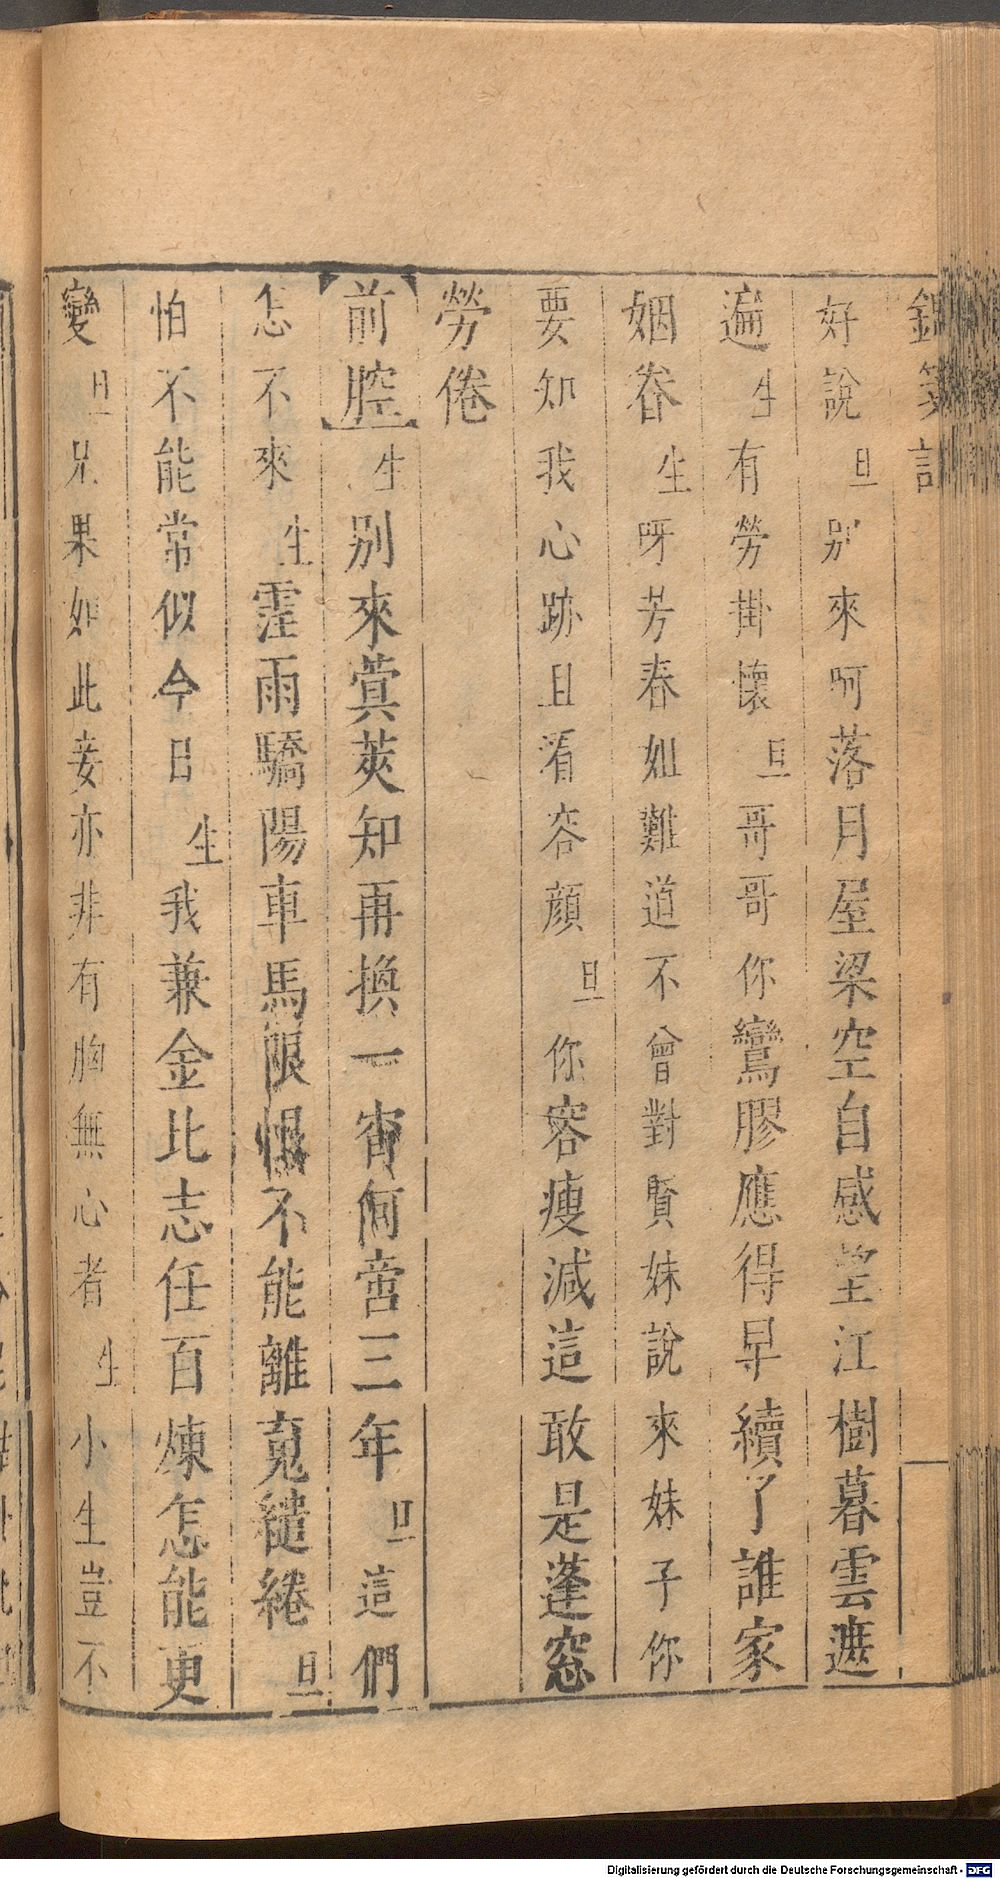 好說旦別來呵落月屋梁空自感望江樹暮雲遮
遍生有勞掛懷旦哥哥你鸞膠應得早續了誰家
姻眷生呀芳春如難道不曾對賢妹說來妹子你
要知我心跡且看容顔旦你容瘦減這敢是蓬窓
勞倦
前腔生别來蓂莢知再換一宵何啻三年旦這們
怎不來生霪雨驕陽車馬限恨不能離䰟繾綣旦
怕不能常似今日生我兼金比志任百煉怎能更
變旦兄果如此妾亦非有胸無心者生小生豈不
Digitalisierung gefördert durch die Deutsche Forschungsgemeinschaft - DFG